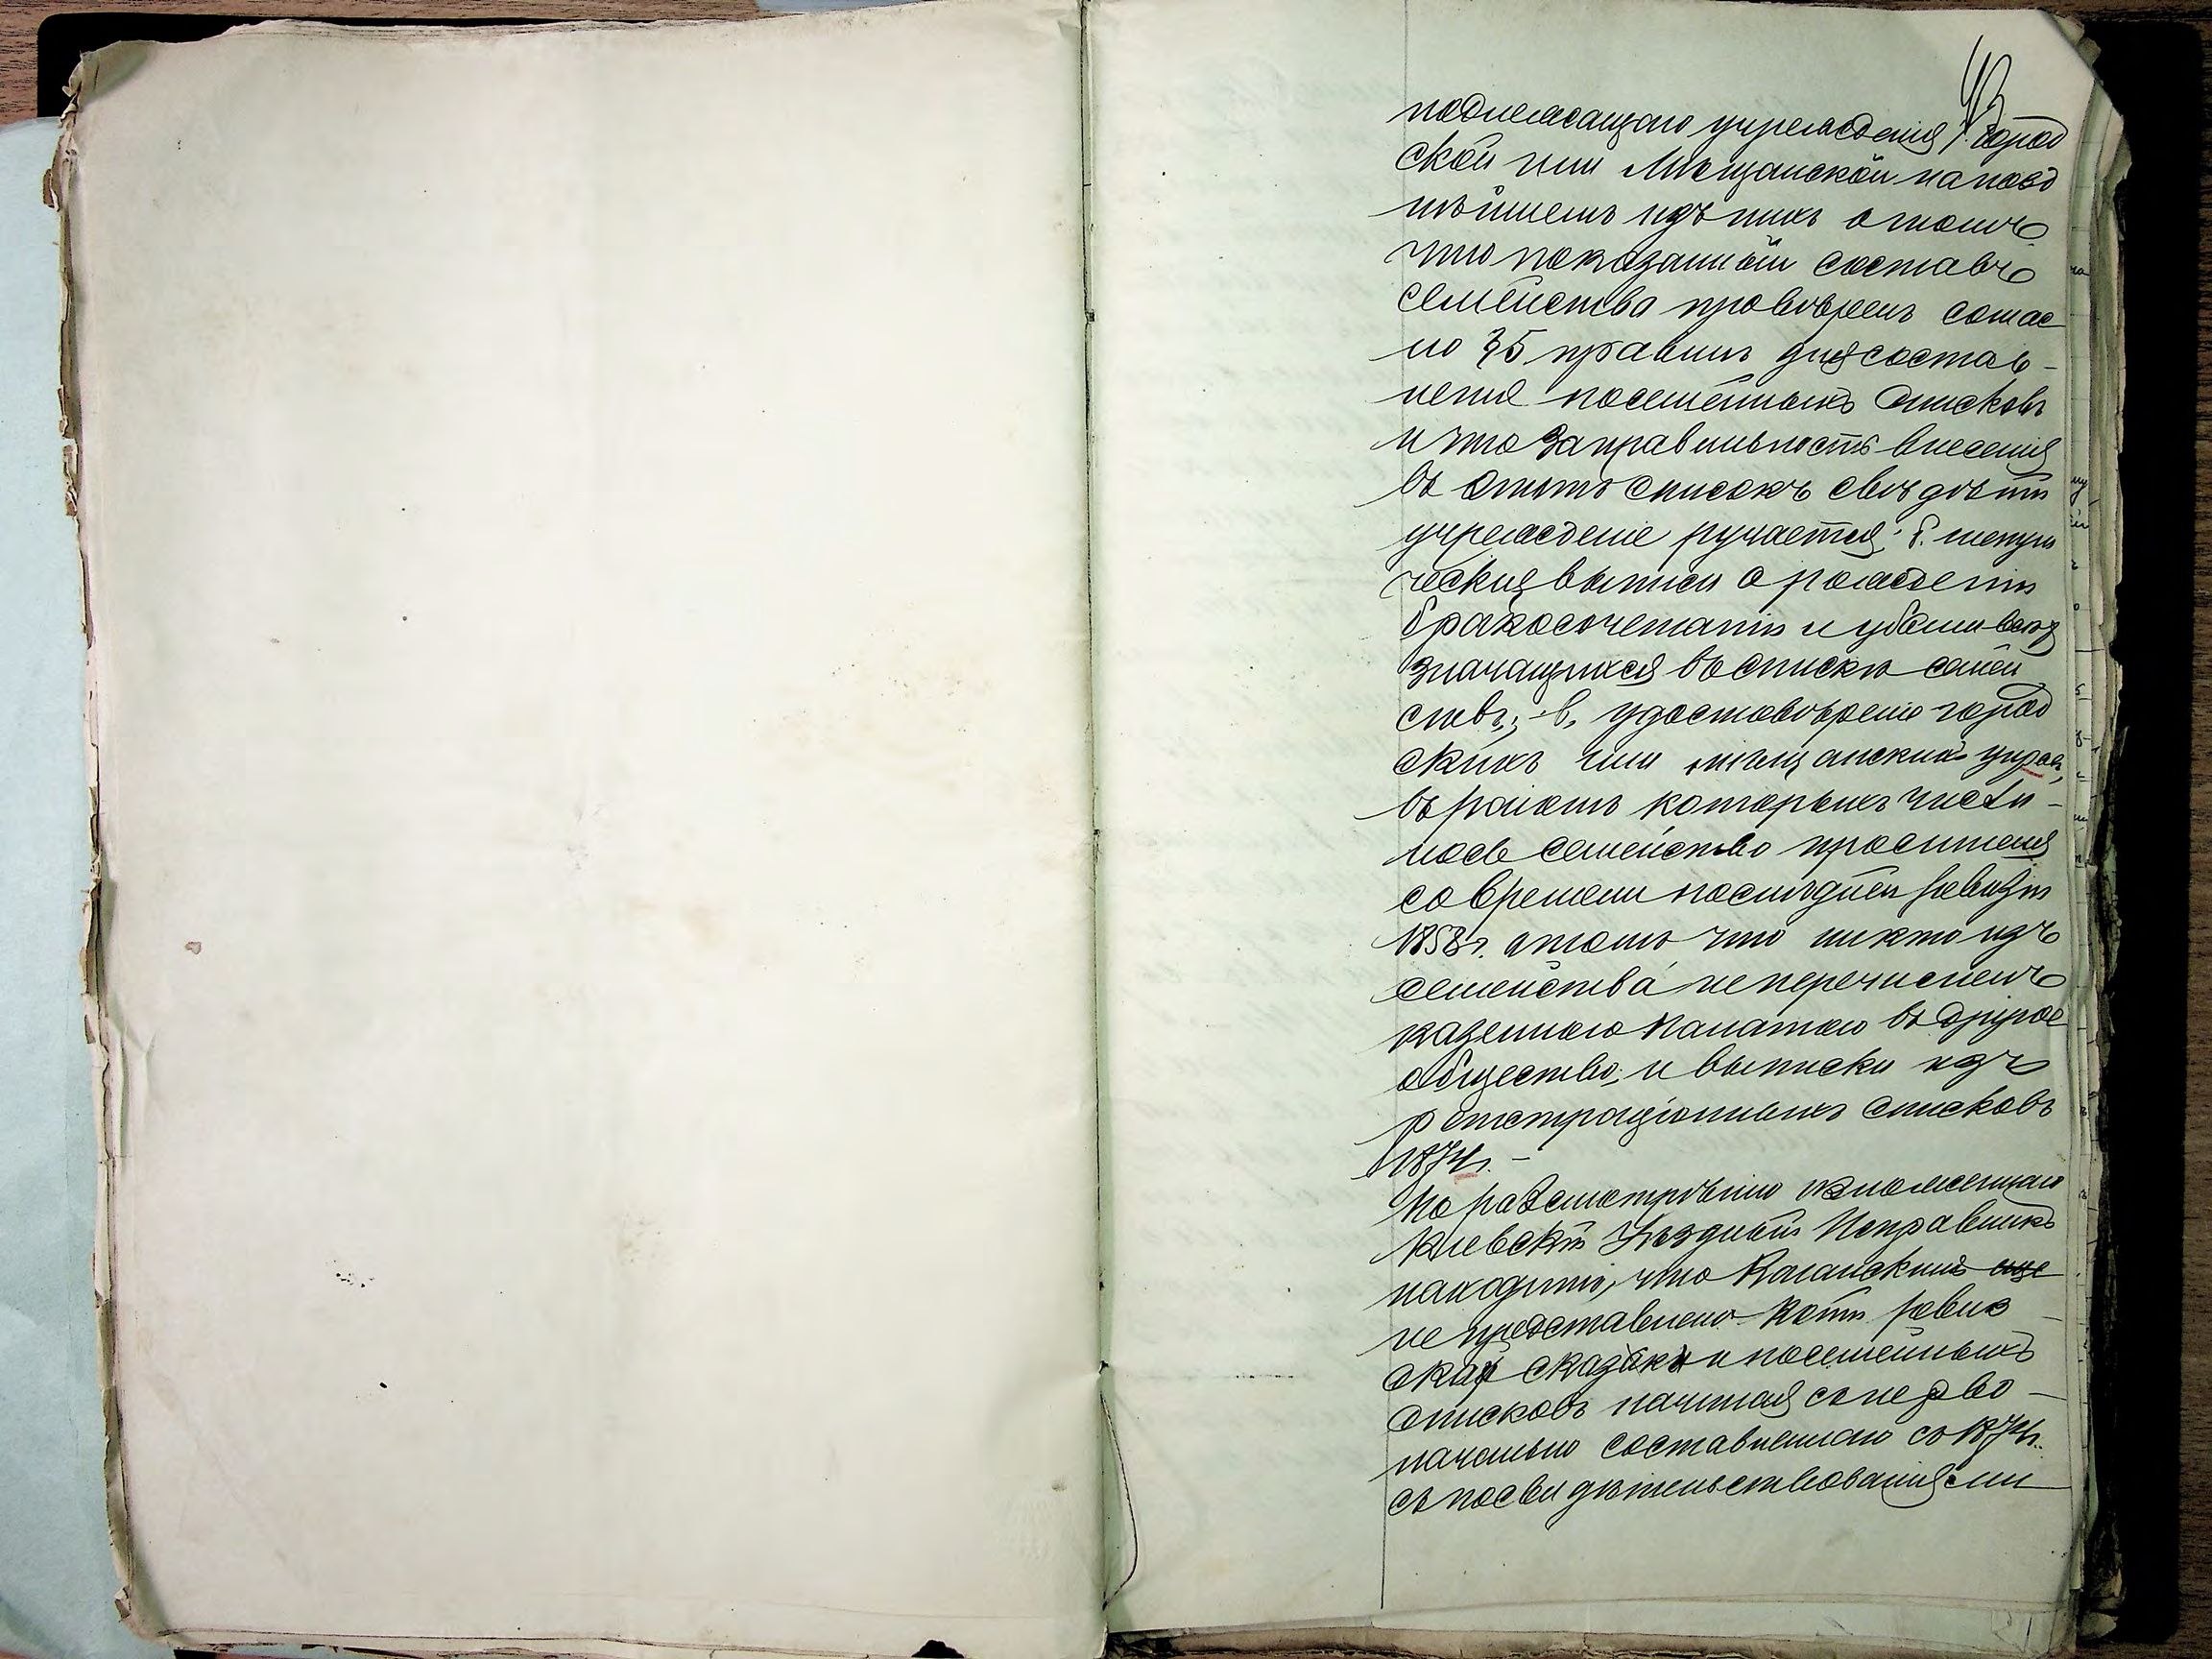 43
подлежащаго учрежденія /: город
ской или Мѣщанской на позд
нѣйшемъ изъ нихъ отомъ
что показанный составъ
семейства провѣренъ соглас
но §5 правилъ для состав-
ленія посемейныхъ списковъ
и что за правильность внесенія
въ этотъ списокъ свѣдѣній
учрежденіе ручается; б. метри
ческія выписи о рожденіи
бракосочетаніи и убыли
значащихся въ спискѣ семей
ствъ; в, удостовѣреніе город
скихъ или мѣщанскихъ управъ,
въ раіонѣ которыхъ числи-
лось семейство просителя
со времени послѣдней ревизіи
1858 г. отомъ что никто изъ
семейства не перечисленъ
казенною палатою въ другое
общество, и выписки изъ
регистраціонныхъ списковъ
1874 г. –
По разсмотрѣнію изложеннаго
Кіевскій Уѣздный Исправникъ
находитъ, что Каганскимъ еще
не представлено копій ревиз
скаг сказок и посемейныхъ
списковъ начиная съ перво-
начально составленнаго съ 1874 г.
съ посвидѣтельствованіями